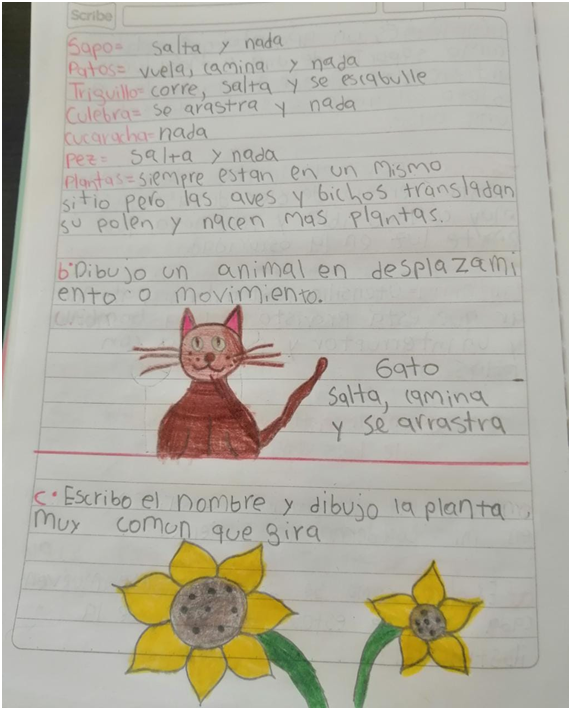 Scribe
Sapo= salta y nada
Patos= vuela, camina y nada
Triguillo= corre, salta y se escabulle
Culebra= se arastra y nada
Cucaracha=nada
Pez= salta y nada
Plantas=siempre estan en un mismo
sitio pero las aves y bichos transladan
su polen y nacen mas plantas.
b•Dibujo un animal en desplazami
ento o movimiento.
Gato
salta, camina
y se arrastra
c•Escribo el nombre y dibujo la planta
muy comun que gira